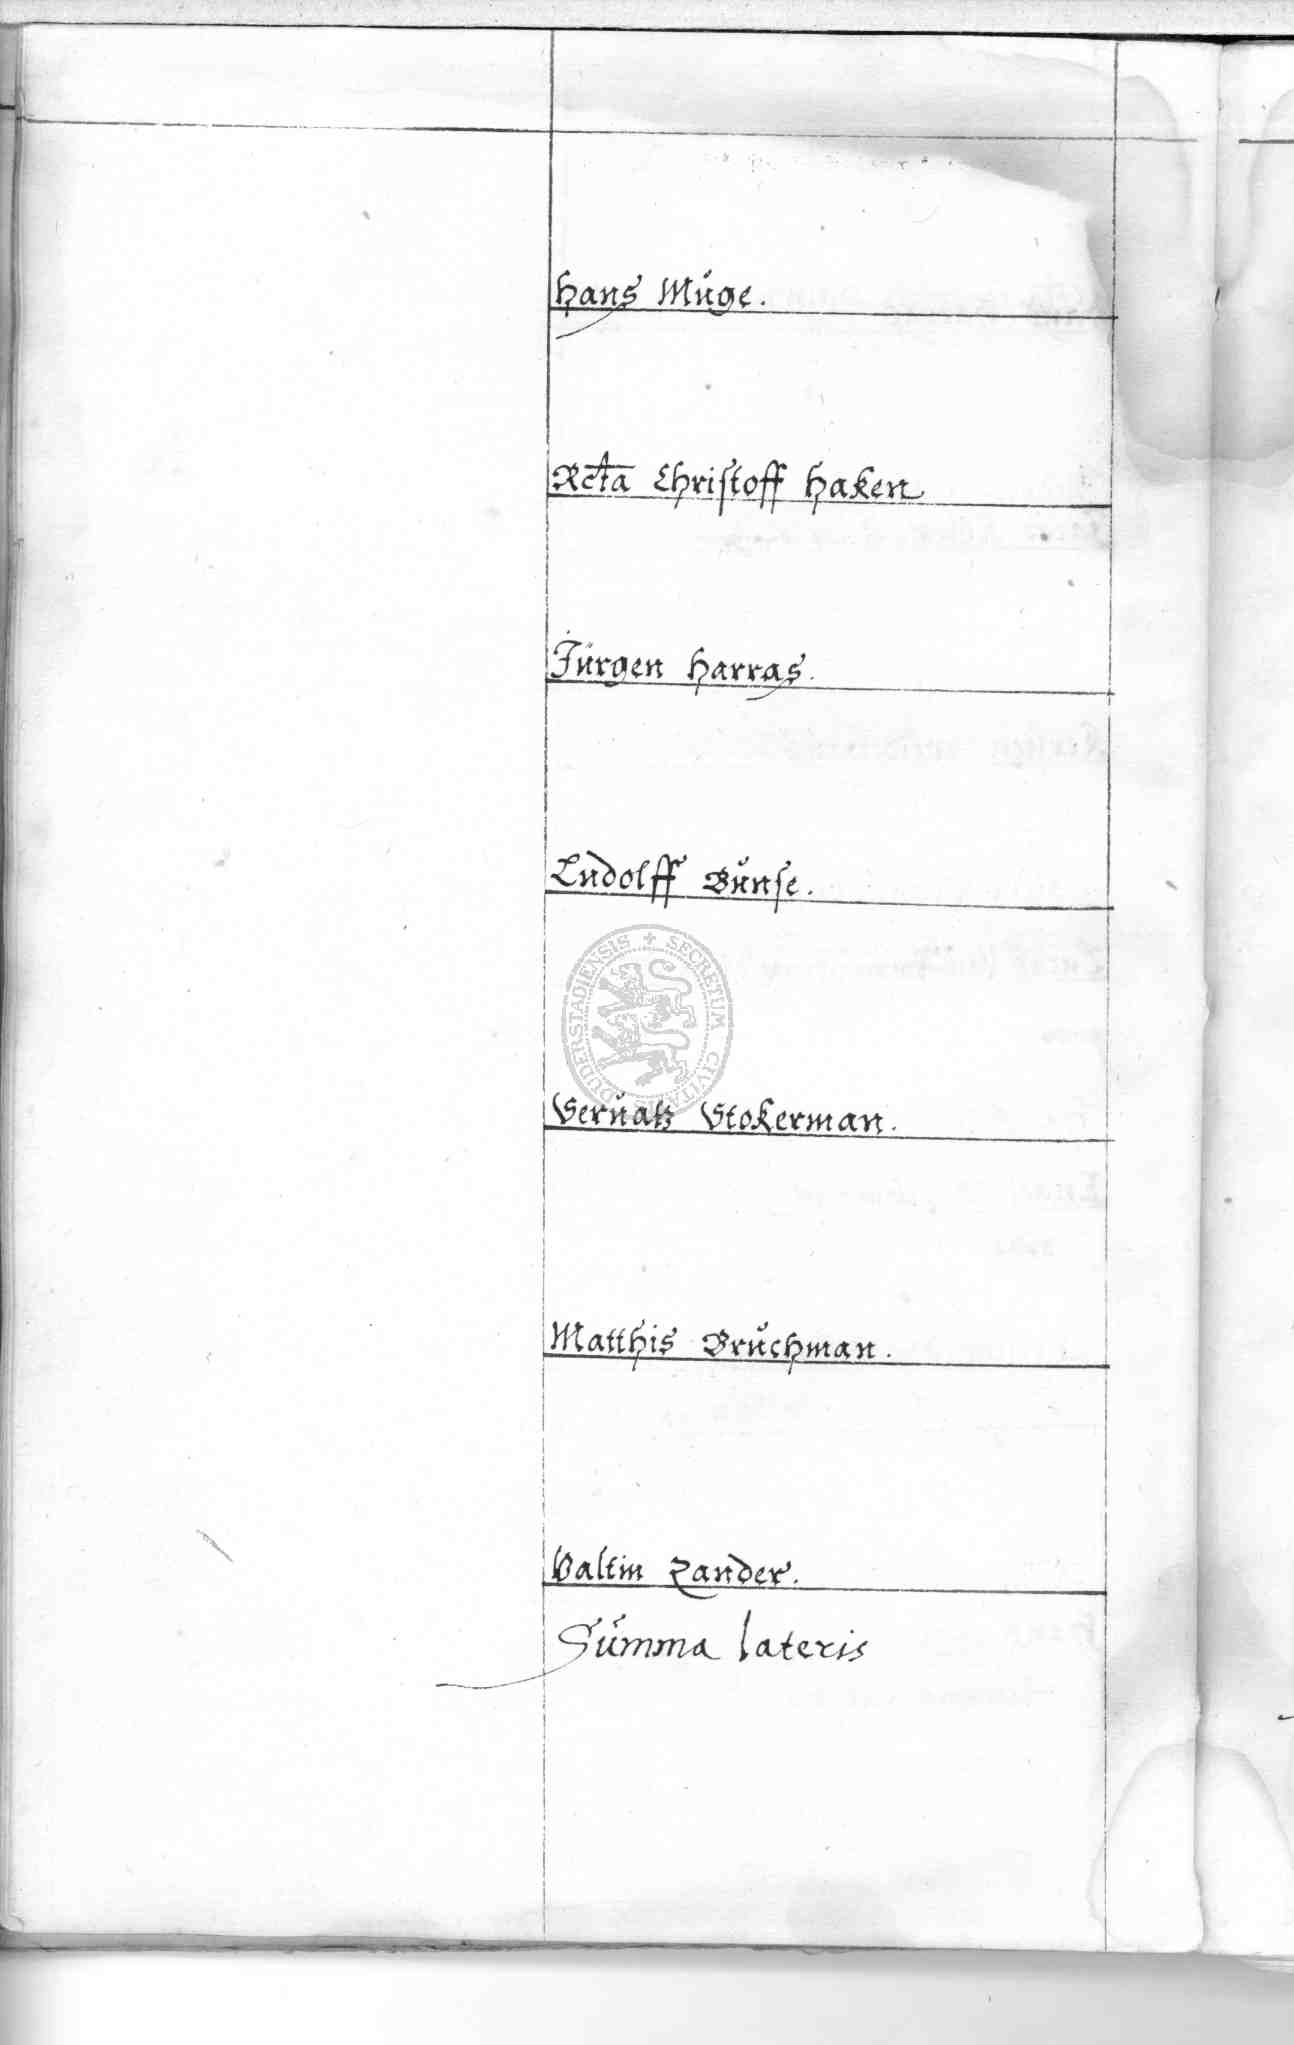 Hans Müge.
Rcta Christoff Haken
Jürgen Harras.
Ludolff Bunse.
SECRETUM CIVITATIS DUDERSTADIENSIS
Servatz Stokerman.
Matthis Bruchman.
Valtin Zander.
Summa lateris